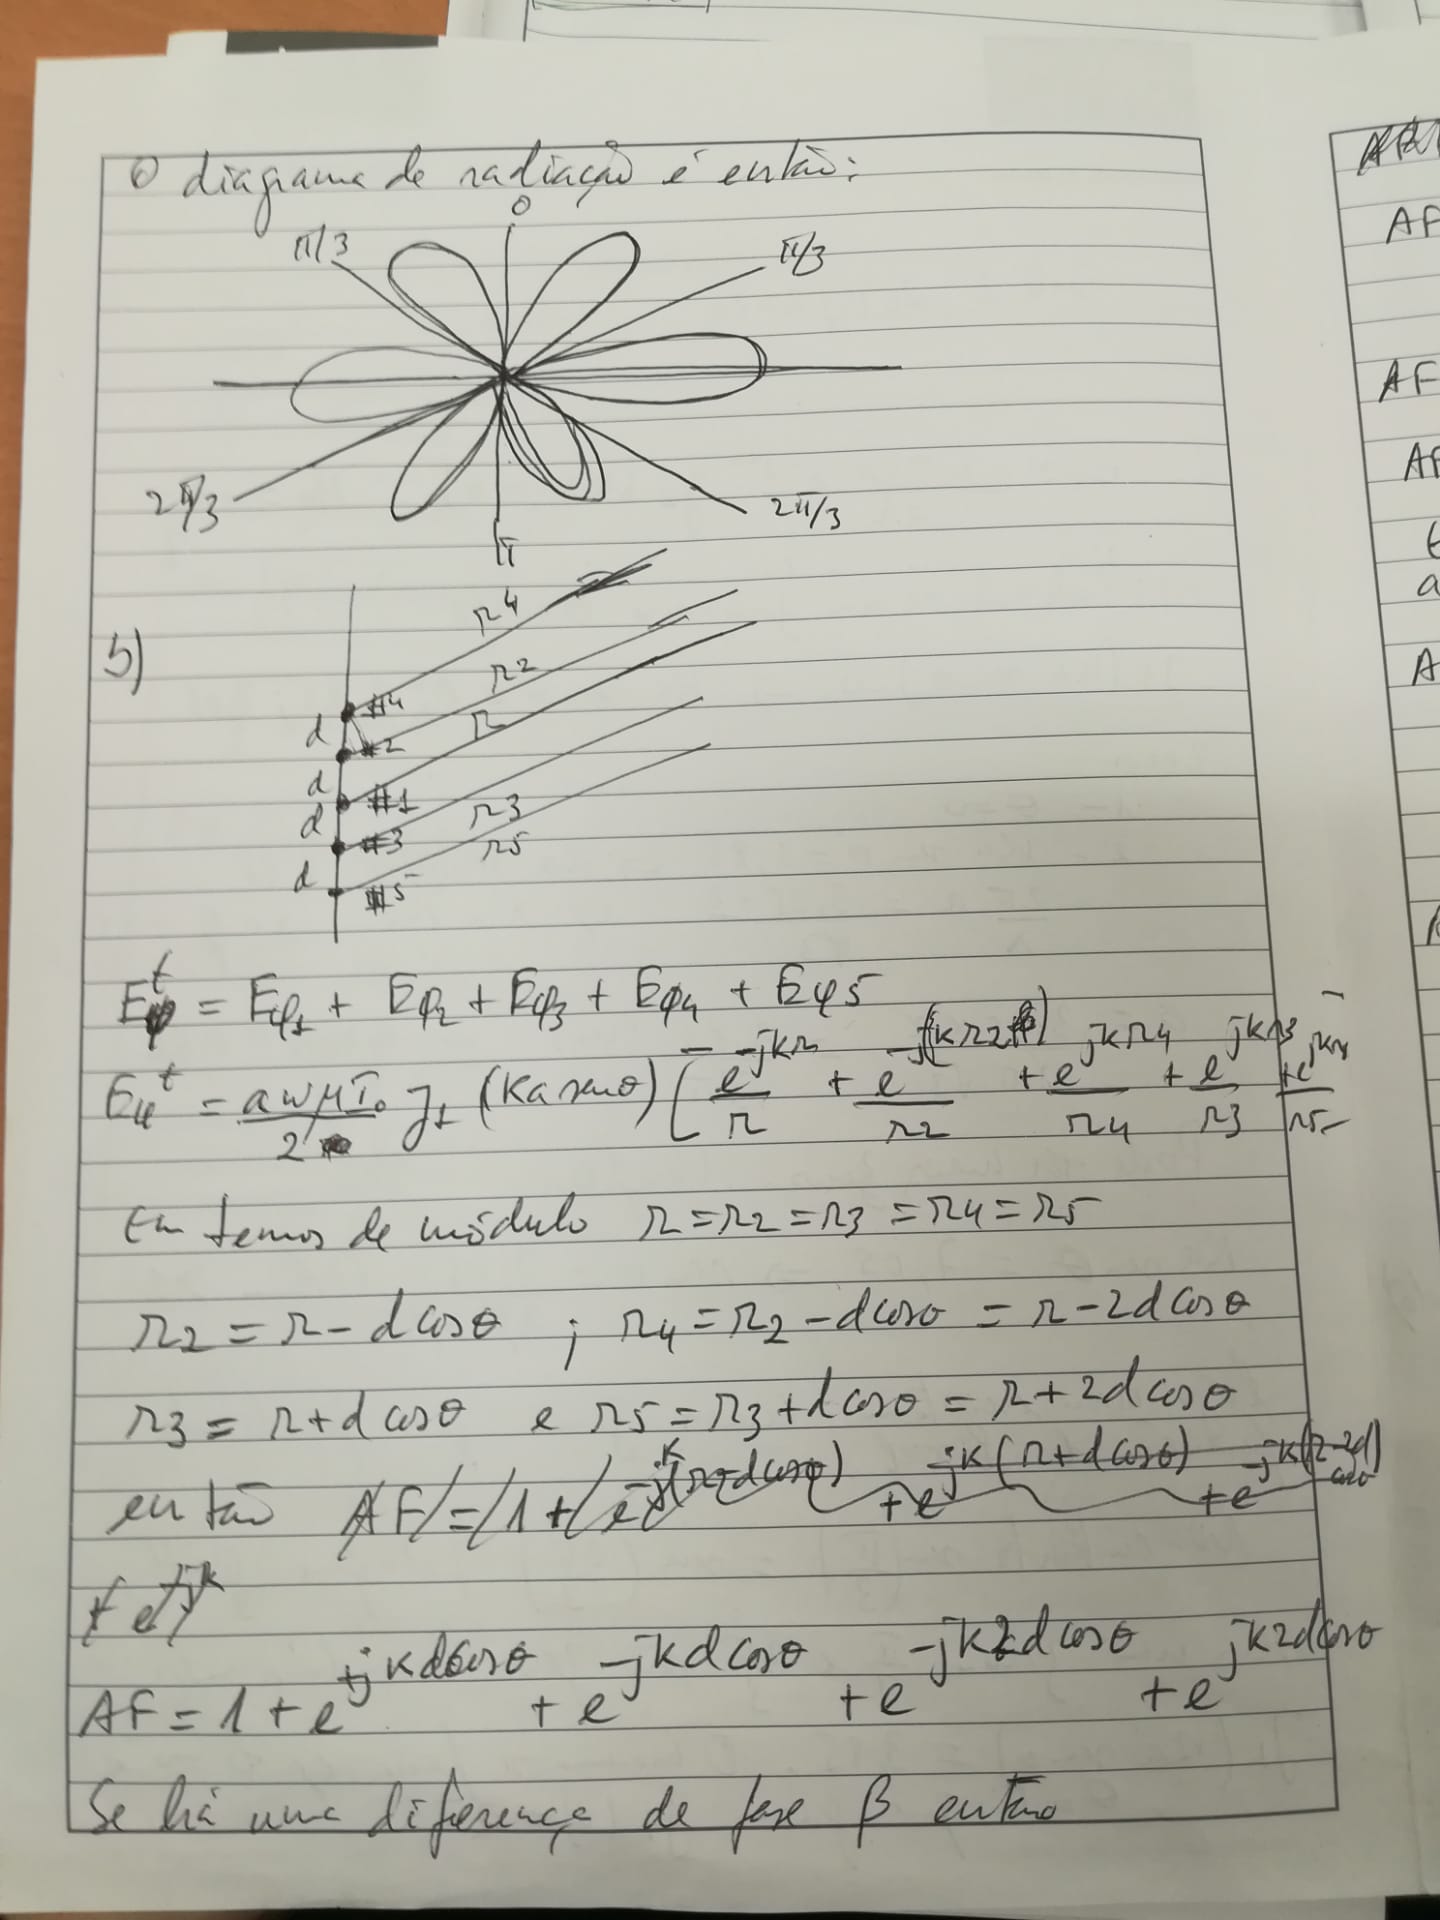 O diagrama de radiação é então:
0
π/3
π/3
2π/3
2π/3
π
b)
r4
r2
r
r3
r5
d #4
#2
d
d #1
#3
d
#5
Eφ^t = Eφ1 + Eφ2 + Eφ3 + Eφ4 + Eφ5
Eφ^t = aωμI₀/2 J1 (ka senθ) [e^-jkr/r + e^-j(kr2)/r2 + e^-jkr4/r4 + e^jkr3/r3 + e^jkr/r5
Em temos de módulo r = r2 = r3 = r4 = r5
r2 = r - d cosθ ; r4 = r2 - d cosθ = r - 2d cosθ
r3 = r + d cosθ e r5 = r3 + d cosθ = r + 2d cosθ
então AF = 1 + e^-jk(r-d cosθ) + e^-jk(r+d cosθ) + e^-jk(r-2d cosθ)
+ e^-jk
AF = 1 + e^+jkd cosθ + e^-jkd cosθ + e^-jk2d cosθ + e^jk2d cosθ
Se há uma diferença de fase β então
AF
AF
AF
AF
a
A